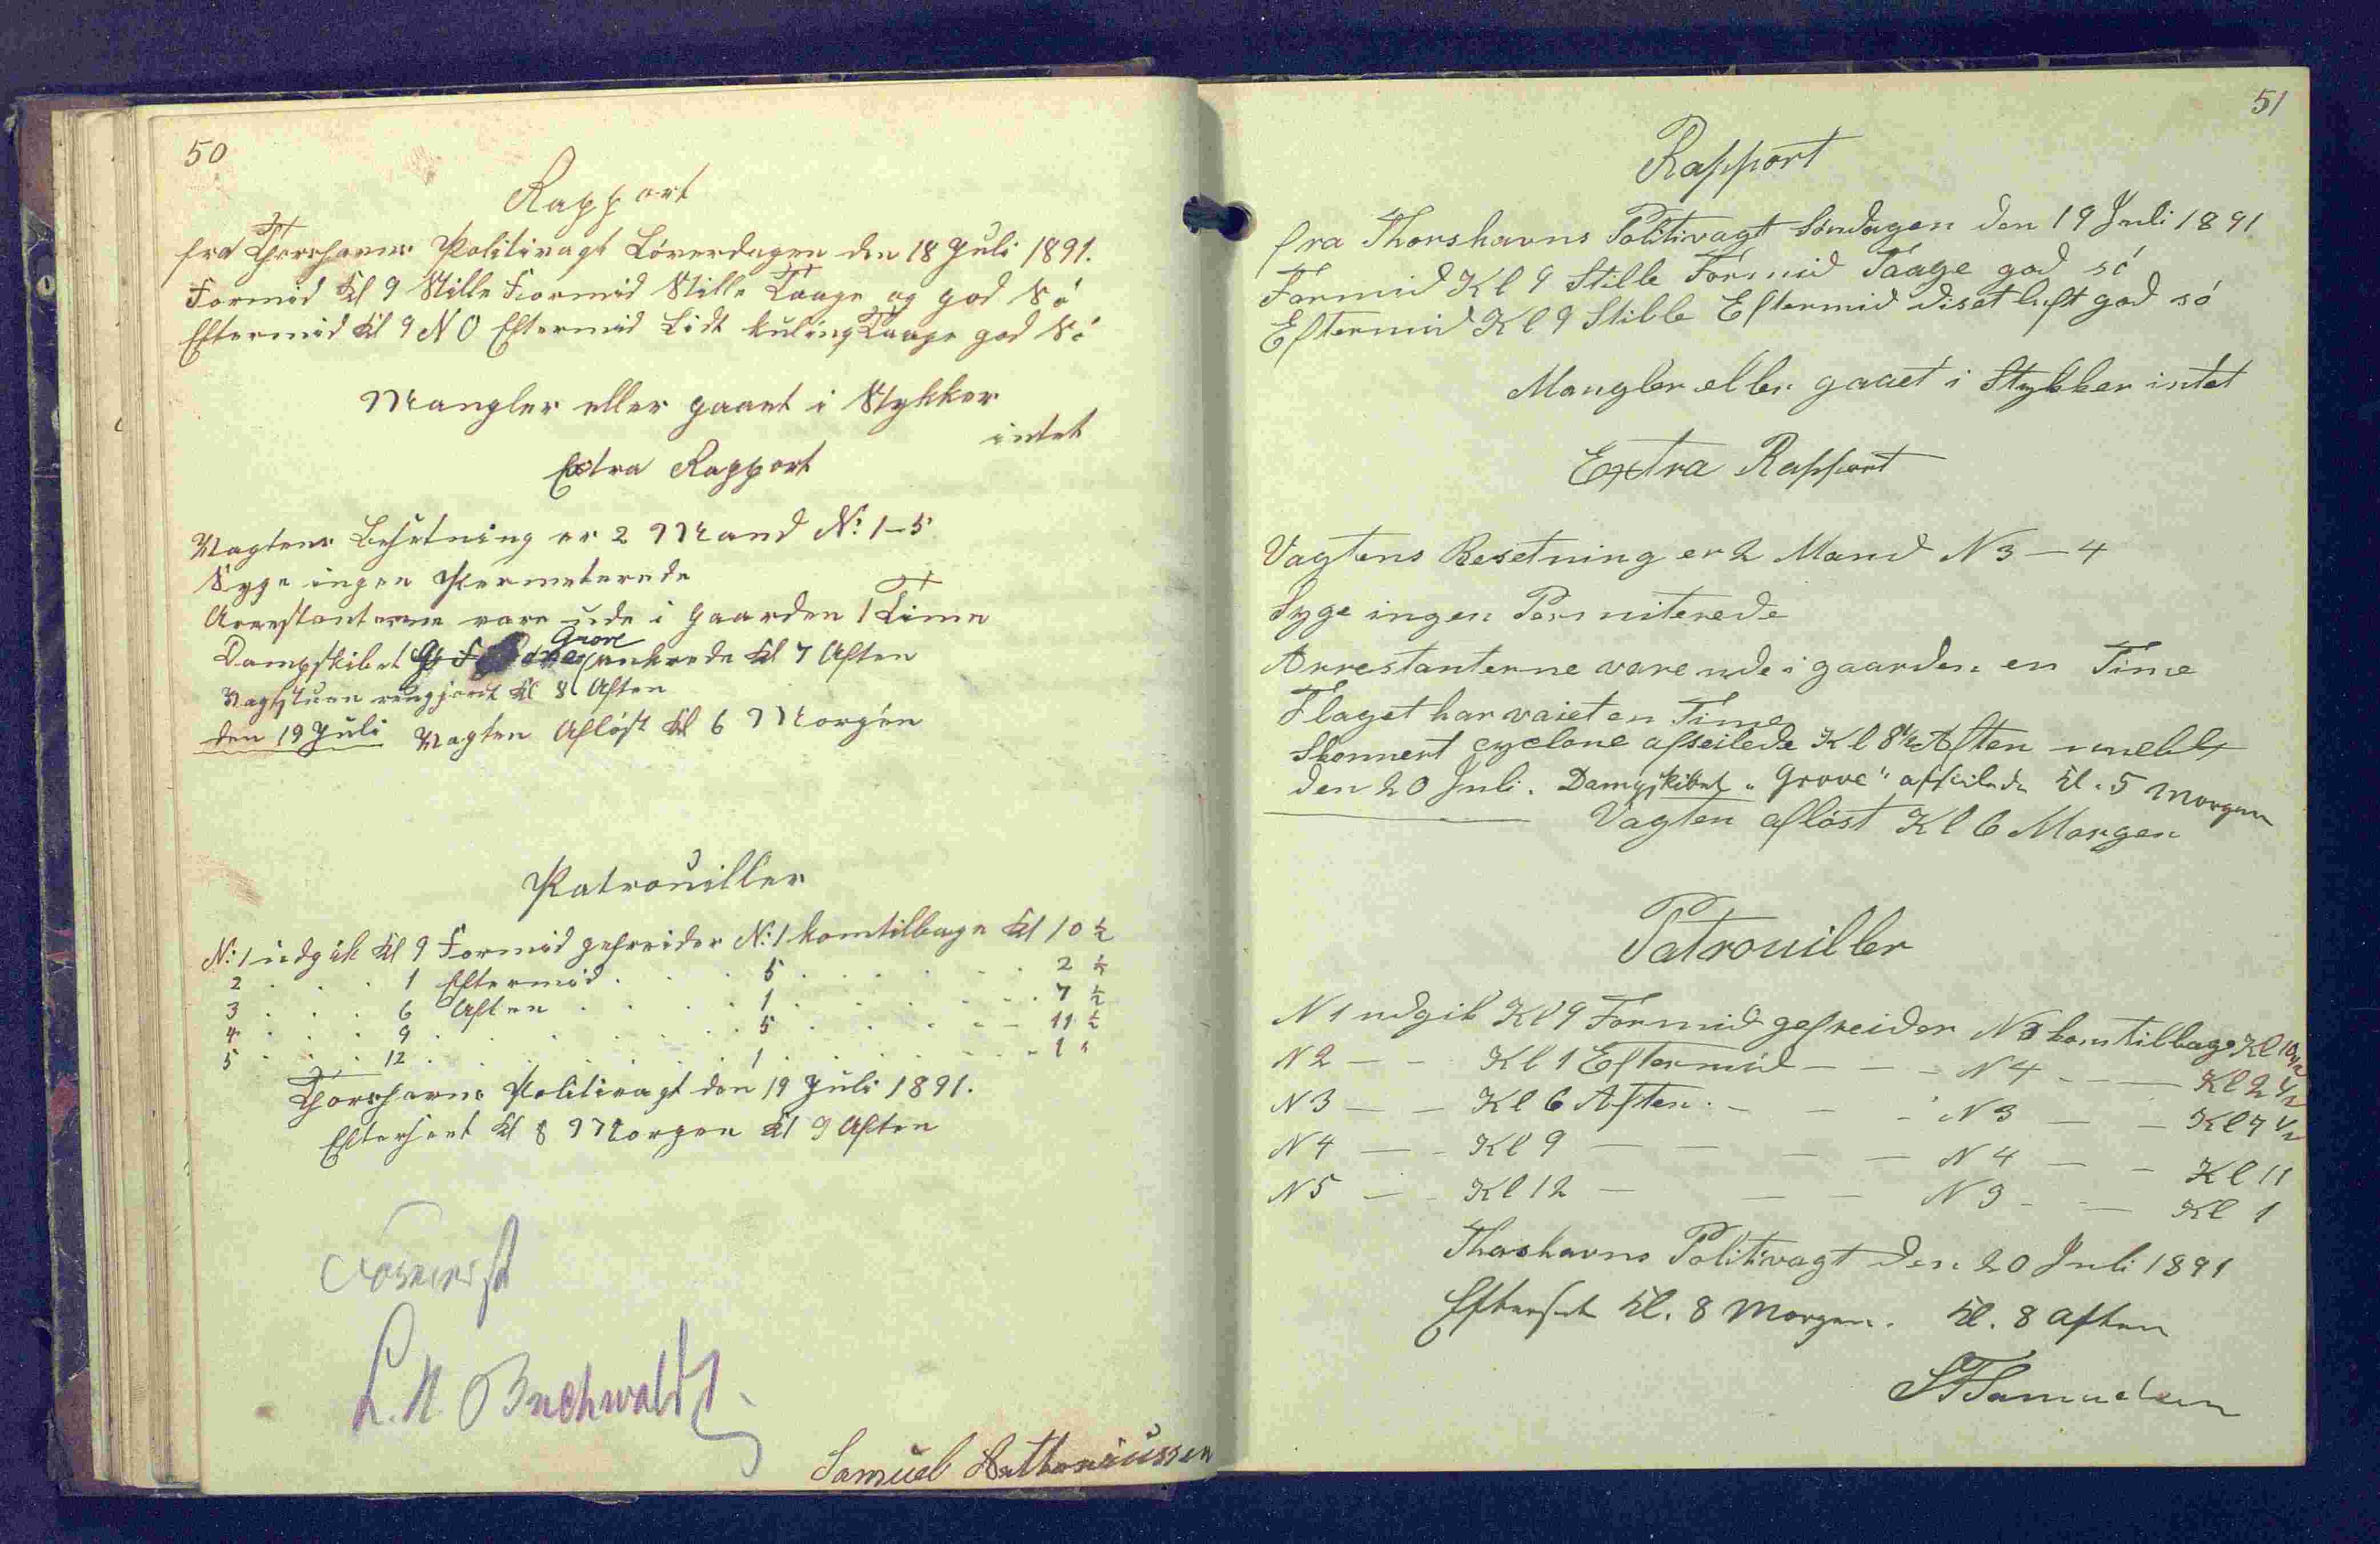 50
Rapport
fra Thorshavns Politivagt Löverdagen den 18 Juli 1891.
Formid Kl 9 Stille Formid Stille Taage og god Sö
Eftermid Kl 9 NO Eftermid Lidt kuling Taage god Sö
Mangler eller gaaet i Stykker
intet
Extra Rapport
Vagtens Besetning er 2 Mand No: 1-5
Syge ingen Permeterede
Arrestanterne vare ude i Gaarden 1 Time
Grove
Dampskibet ankrede Kl 7 Aften
Vagtstuen rengjort Kl 8 Aften
den 19 Juli Vagten Aflöst Kl 6 Morgen
Patrouiller
No: 1 udgik Kl 9 Formid gefreider No: 1 kom tilbage Kl 10 ½
2 . . . 1 Eftermid . . . 5 . . . . . . 2 ½
3 . . . 6 Aften . . . . 1 . . . . . . 7 ½
4 . . . 9 . . . . . . . 5 . . . . - - 11 ½
5 . . . 12 . . . . . . . 1 . . . . . - 1 "
Thorshavns Politivagt den 19 Juli 1891.
Efterseet Kl 8 Morgen Kl 9 Aften
L. N. Buchwaldt
Samuel
51
Rapport
fra Thorshavns Politivagt Söndagen den 19 Juli 1891
Formid Kl 9 Stille Formid Taage god sö
Eftermid Kl 9 Stille Eftermid diset luft god sö
Mangler eller gaaet i Stykker intet
Extra Rapport
Vagtens Besetning er 2 Mand N 3 - 4
Syge ingen Permiterede
Arrestanterne vare ude i gaarden en Time
Flaget har vaiet en Time
Skonnert cyclone afseilede Kl 8½ Aften
den 20 Juli. Dampskibet "Grove" afseilede Kl. 5 Morgen
Vagten aflöst Kl 6 Morgen
Patrouiller
N 1 udgik Kl 9 Formid gefreider N 3 kom tilbage Kl 10½
N 2 - - Kl 1 Eftermid - - - N 4 - - - Kl 2 ½
N 3 - - Kl 6 Aften - - - N 3 - - Kl 7 ½
N 4 - - Kl 9 - - - - N 4 - - Kl 11
N 5 - - Kl 12 - - - N 3 - - Kl 1
Thoshavns Politivagt den 20 Juli 1891
Efterset Kl. 8 Morgen. Kl. 8 Aften
Samuelsen